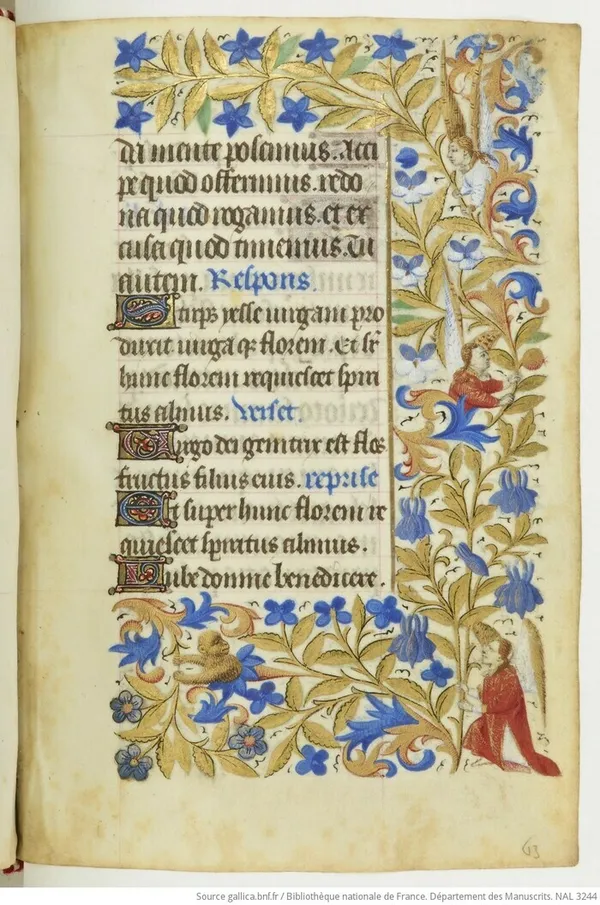 da mente poscimus. Acci
pe quod offerimus. redo
na quod rogamus. et ex
cusa quod timemus. Tu
autem. Respons.
Stirps yesse uirgam pro
duxit uirga qz florem. Et sr̄
hunc florem requiescet spiri
tus almus. Verset.
Virgo dei genitrix est flos
fructus filius eius. reprise
Et super hunc florem re
quiescet spiritus almus.
Iube domne benedicere.
63
Source gallica.bnf.fr / Bibliothèque nationale de France. Département des Manuscrits. NAL 3244